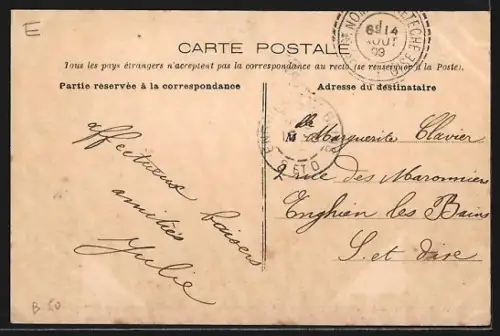 E
CARTE POSTALE
Tous les pays étrangers n'acceptent pas la correspondance au recto (se renseigner à la Poste).
Partie réservée à la correspondance
Adresse du destinataire
affectueux baisers
amitiés
Julie
Mlle Marguerite Clavier
2 rue des Maronniers
Enghien les Bains
S. et Oise
6E 14
AOUT
09
B 50